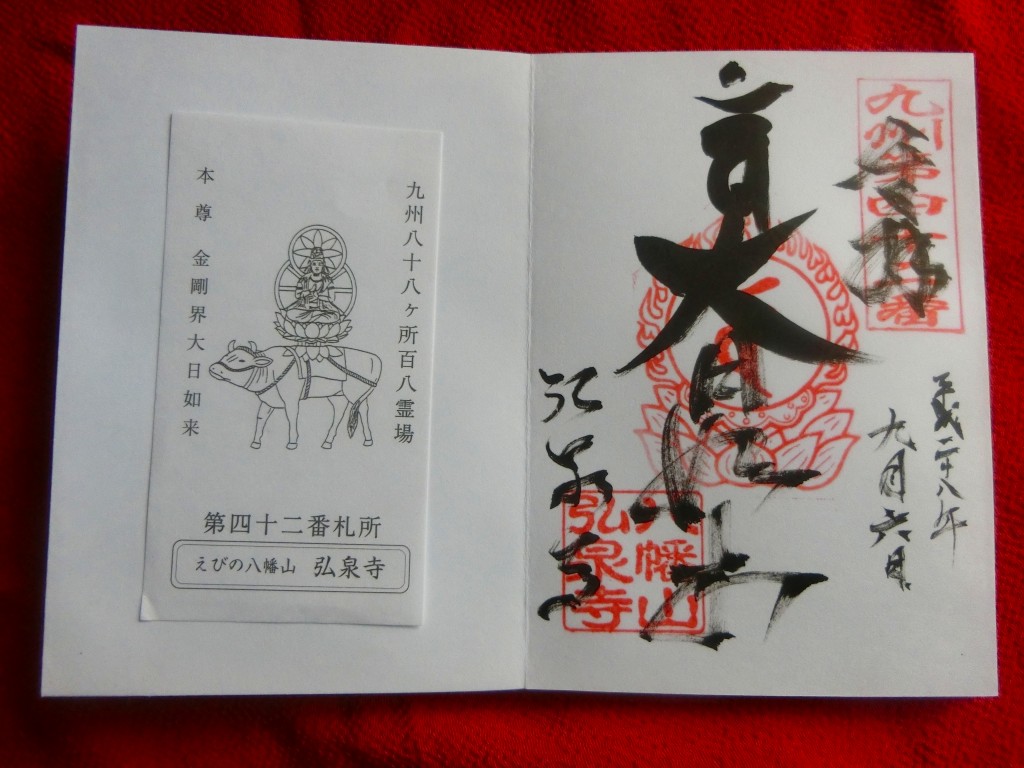 九州八十八ヶ所百八霊場
本尊 金剛界大日如来
第四十二番札所
えびの八幡山 弘泉寺
九州第四十二番
奉拝
平成二十八年
九月六日
大日如来
弘泉寺
八幡山
弘泉寺